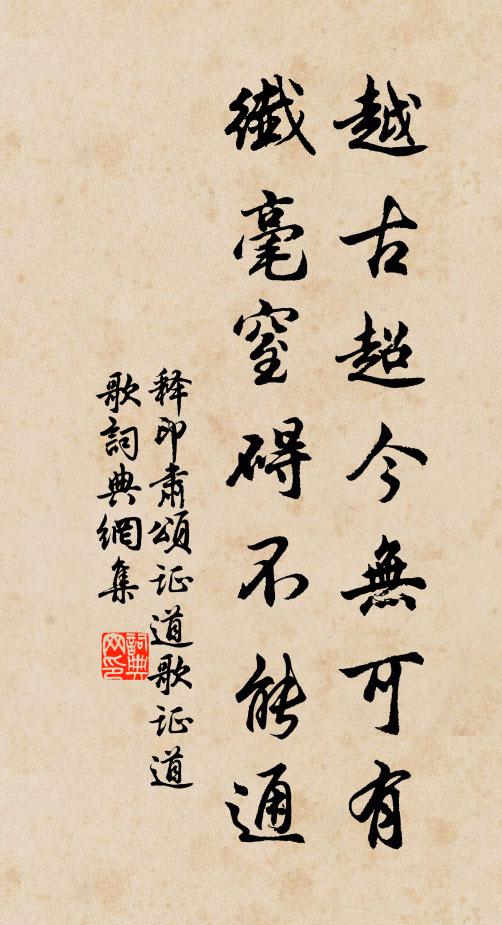 越古超今無可有
纖毫窒碍不能通
释印肅頌证道歌证道
歌詞典網集
詞典
网印